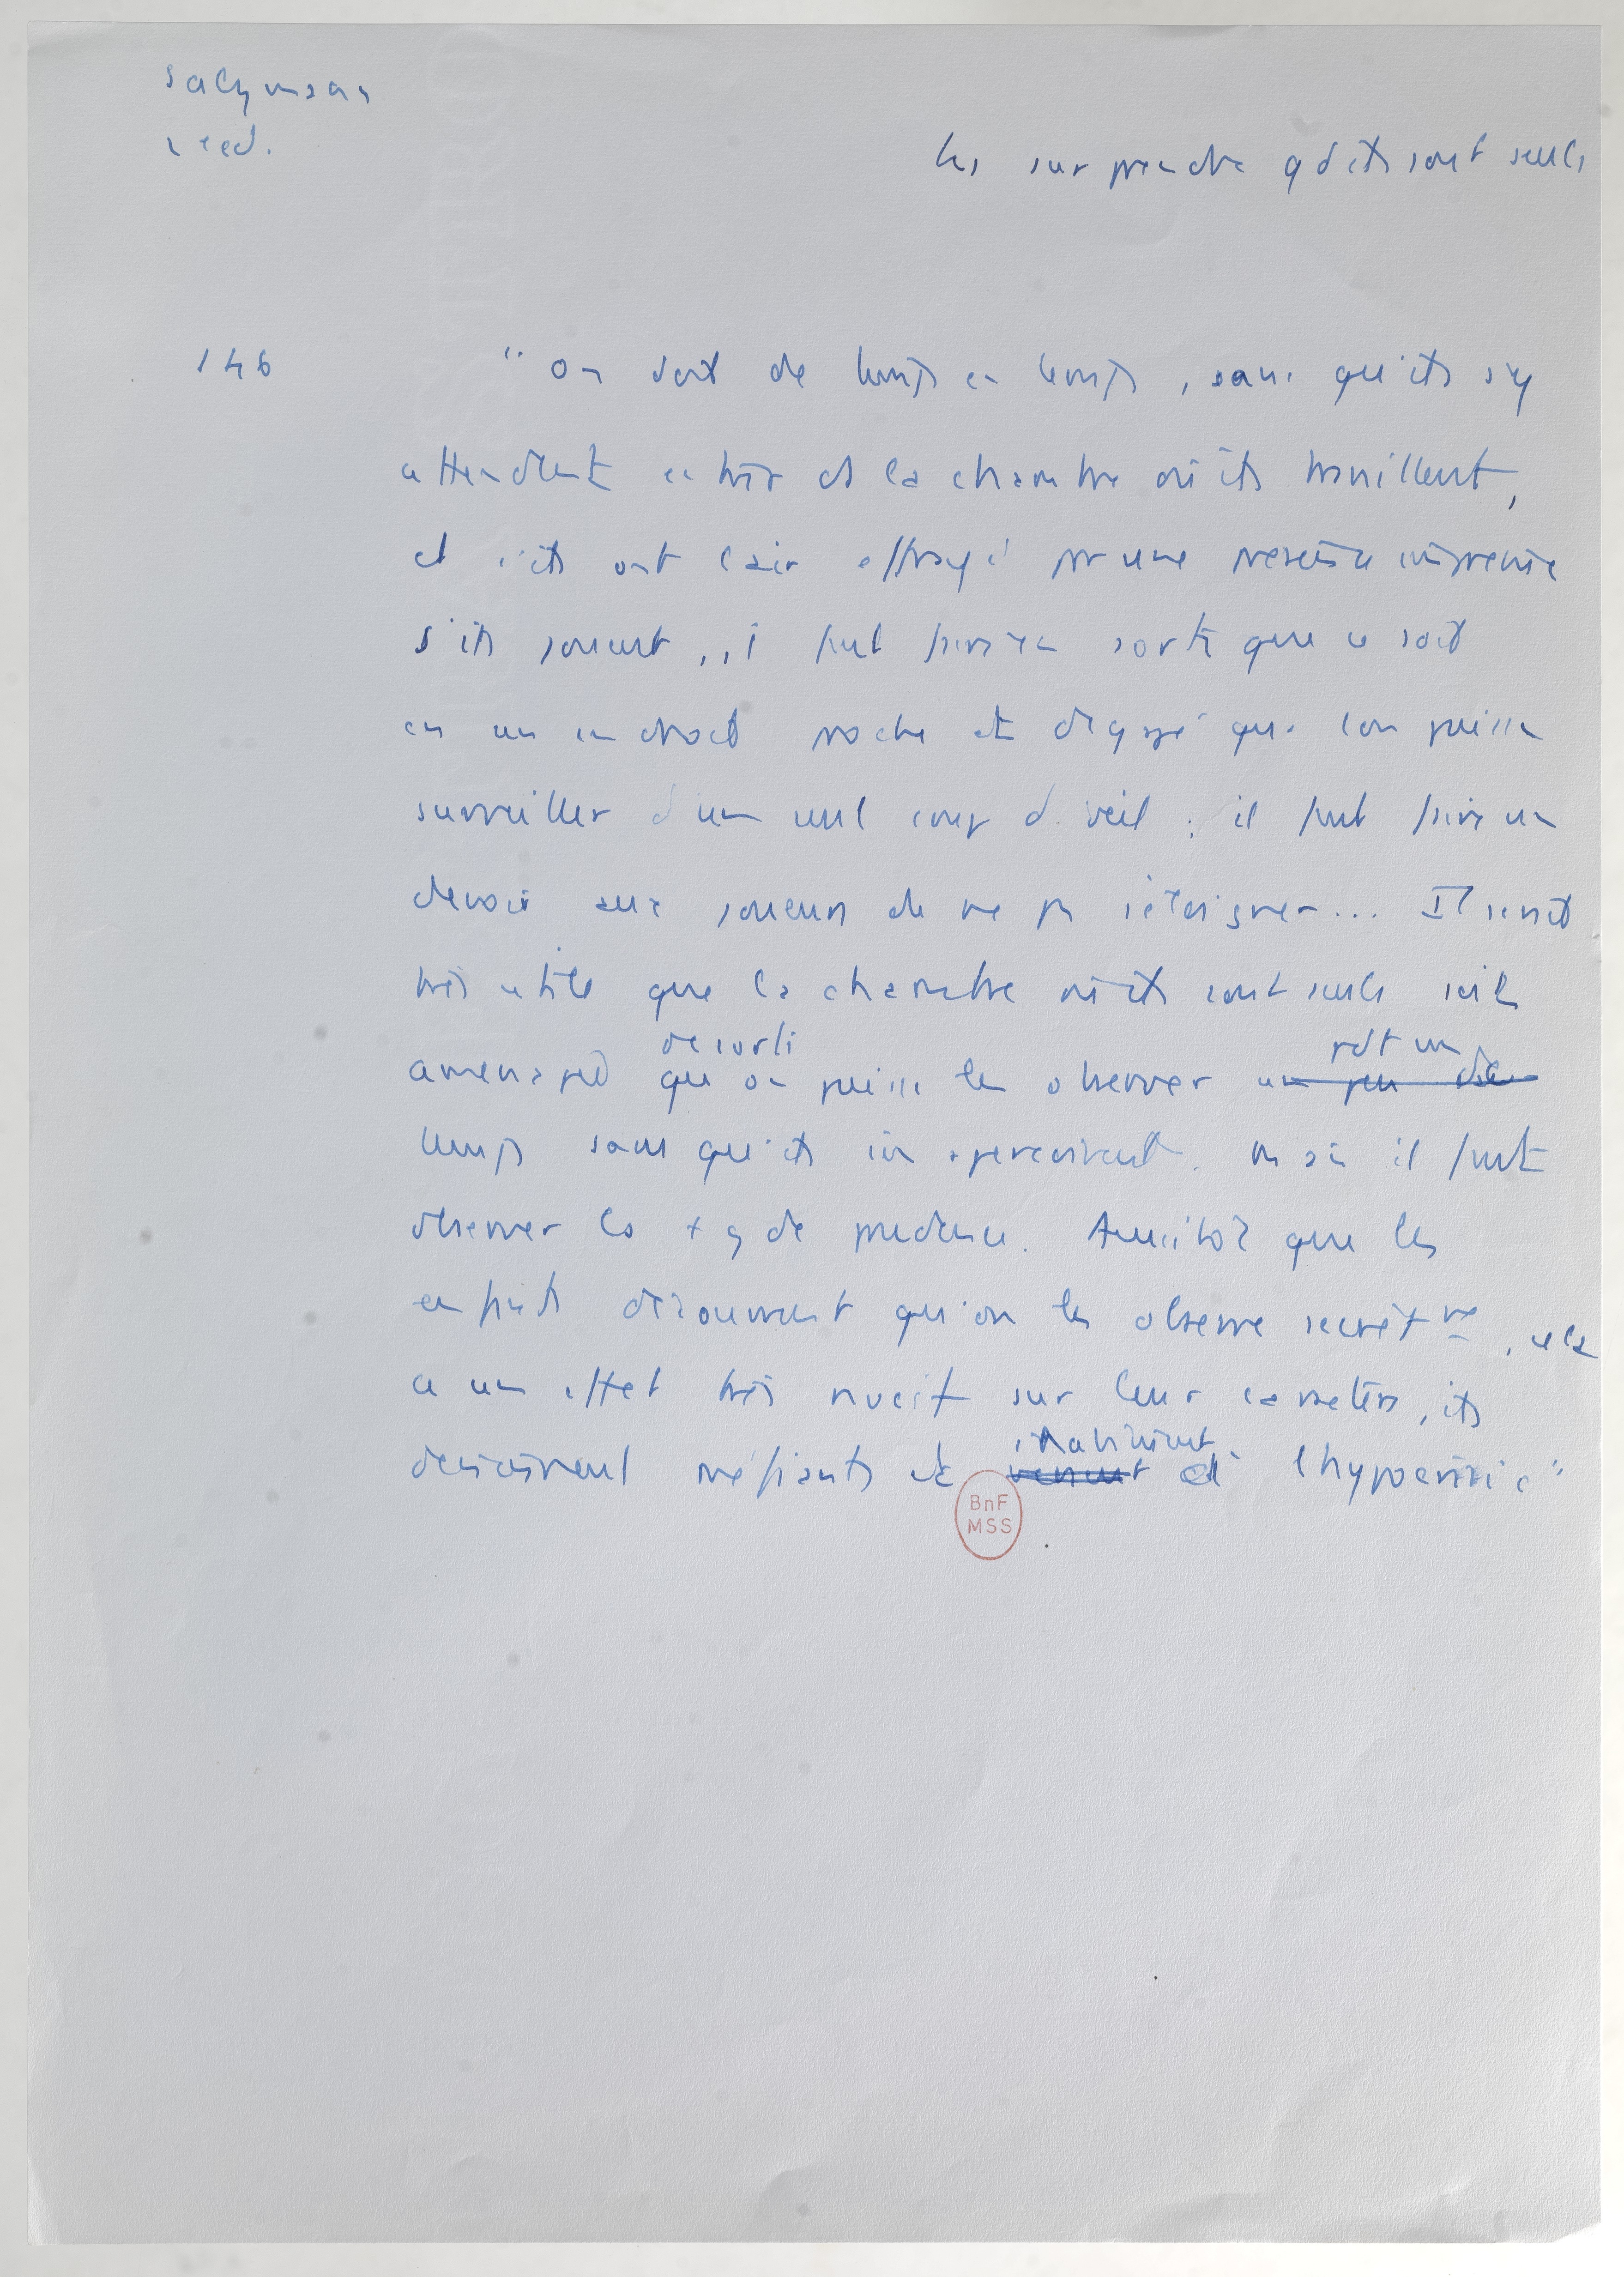 Salzmann
les surprendre qd ils sont seuls
146 "On doit de temps en temps, sans qu'ils s'y
attendent entrer ds la chambre où ils travaillent,
et s'ils ont l'air effrayé par une présence imprévue
S'ils jouent, il faut faire en sorte que ce soit
en un endroit proche et dégagé que l'on puisse
surveiller d'un seul coup d'oeil ; il faut faire un
devoir aux joueurs de ne pas s'éloigner... Il serait
très utile que la chambre où ils sont seuls soit
de sorte
pdt un
aménagée qu'on puisse les observer un peu de
temps sans qu'ils s'en aperçoivent. Mais il faut
observer la + gde prudence. Aussitôt que les
enfants découvrent qu'on les observe secrètmt, cela
a un effet très nocif sur leur caractère, ils
deviennent méfiants et à l'hypocrisie"
BnF
MSS